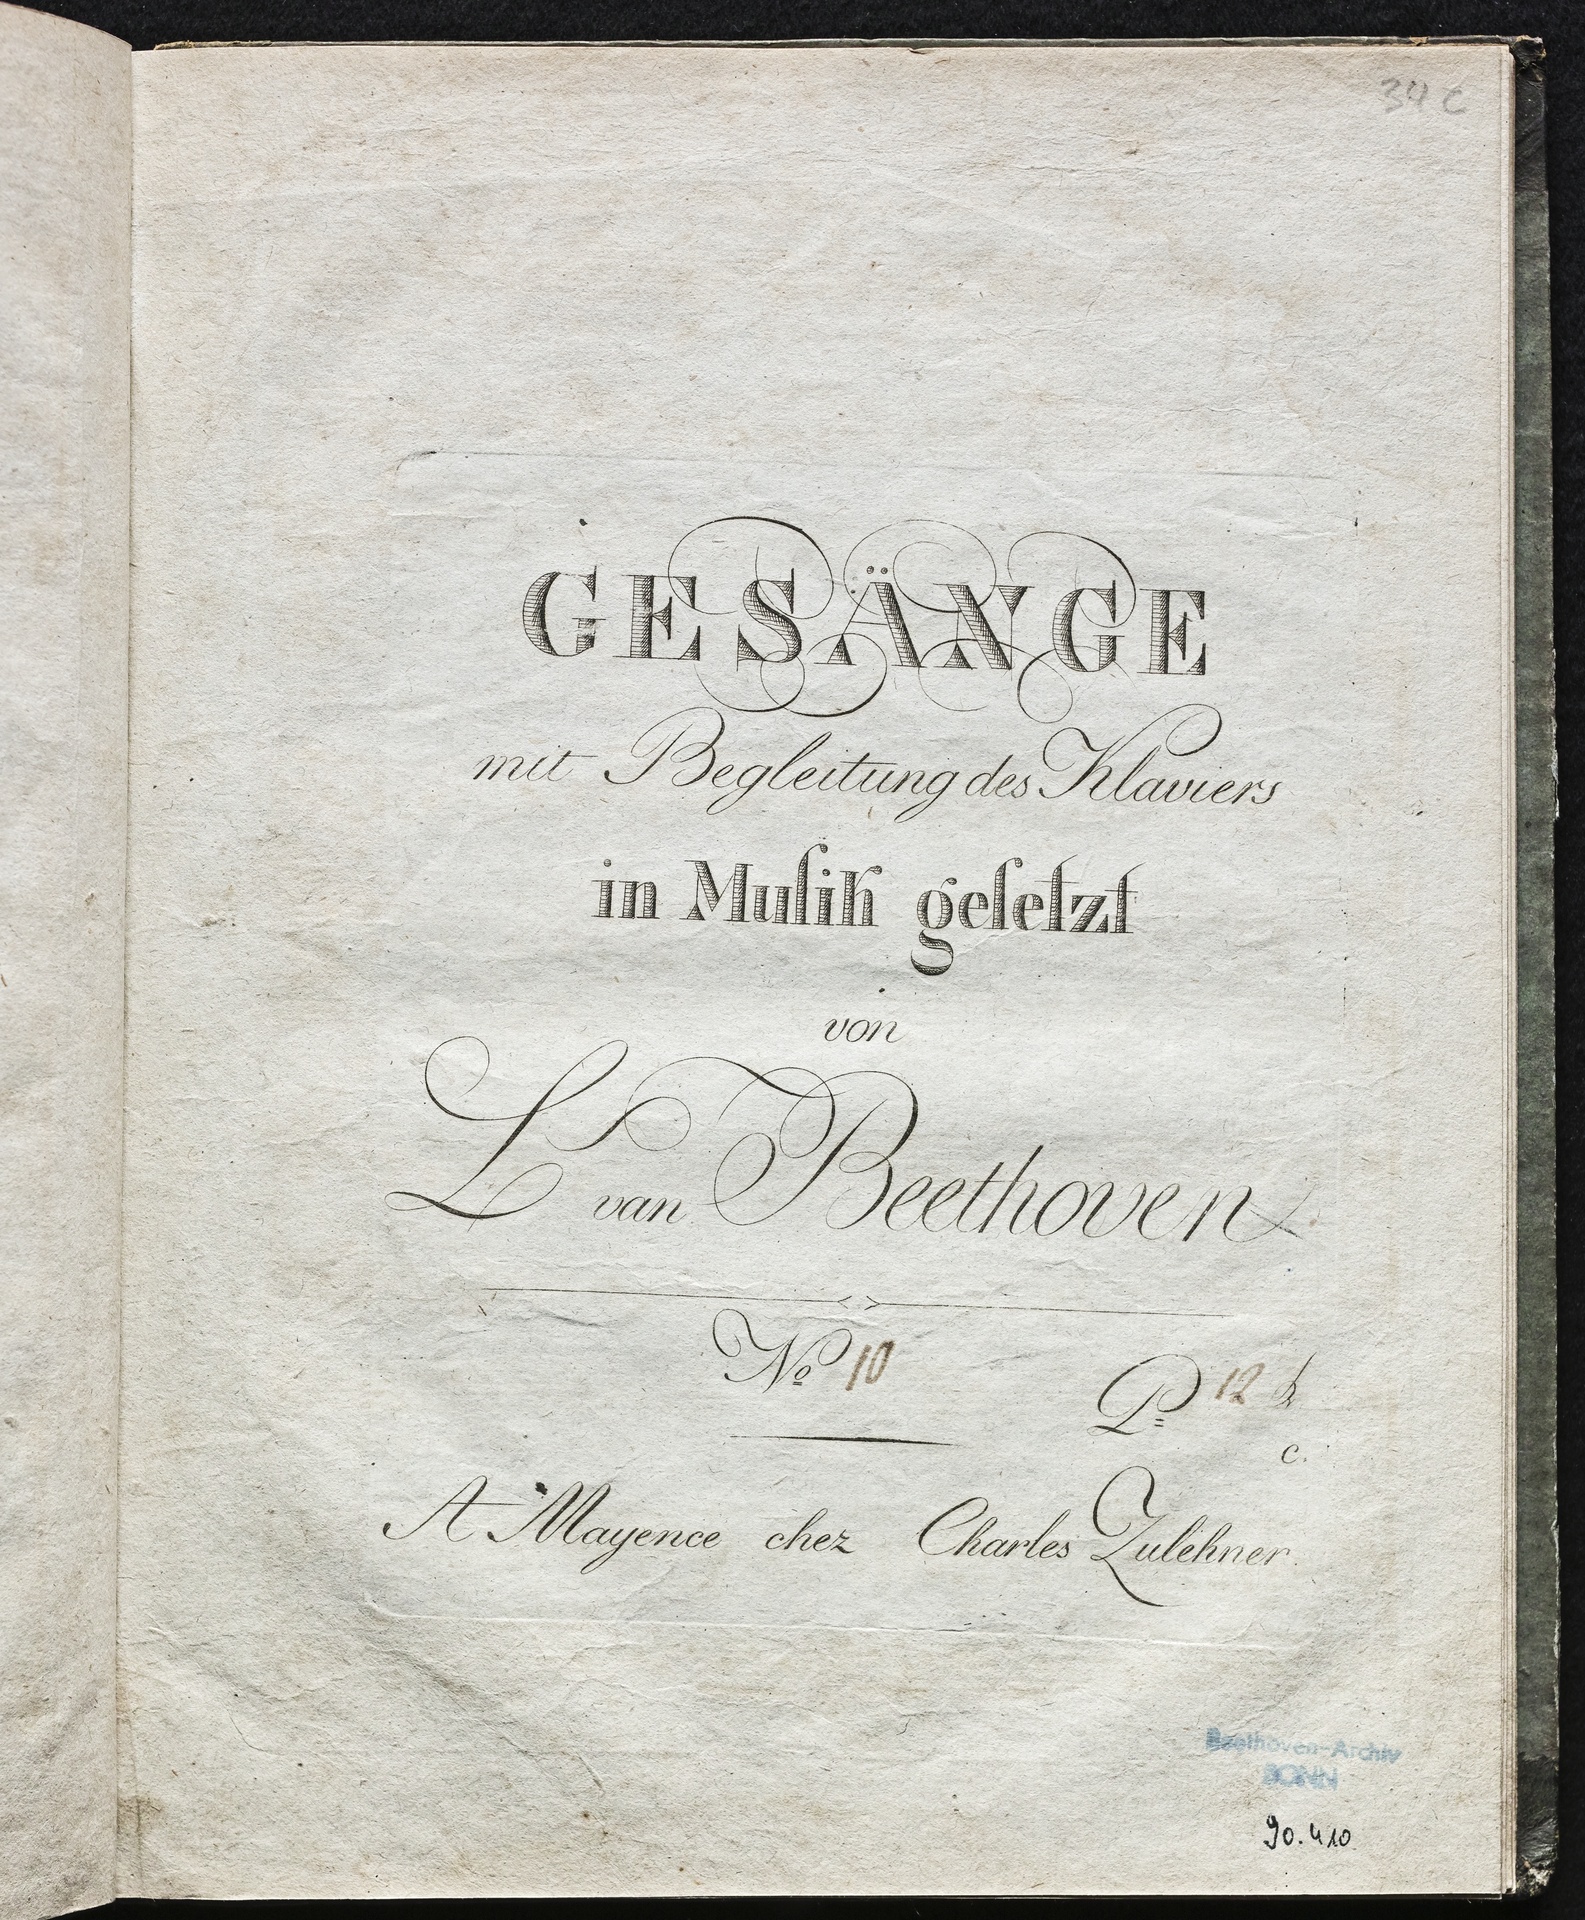 34 c
GESÄNGE
mit Begleitung des Klaviers
in Muſik geſetzt
von
L van Beethoven
Nº 10
P= 12
c.
A Mayence chez Charles Zulehner.
Beethoven-Archiv
BONN
90.410